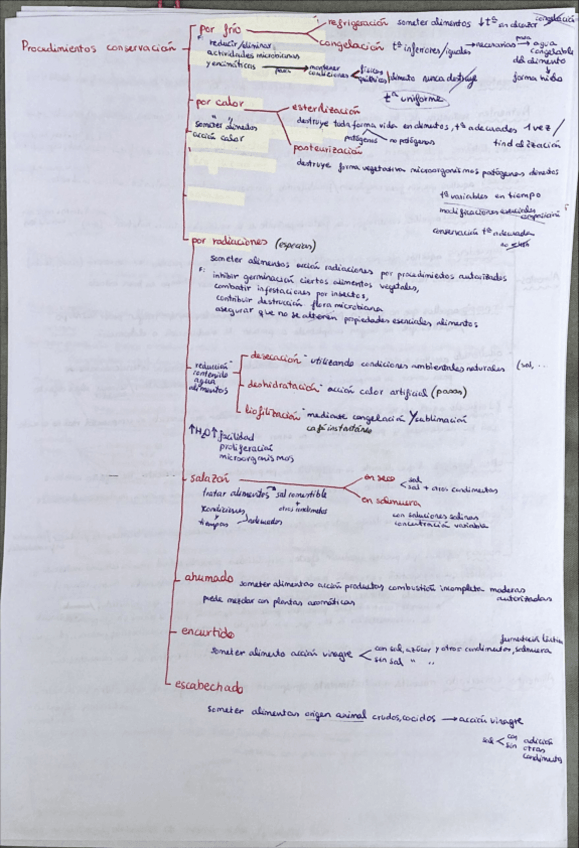 Procedimientos conservación
por frío
reducir/eliminar
actividades microbianas
y enzimáticas para mantener condiciones físicas químicas / alimento nunca destruye
refrigeración someter alimentos ↓tª sin alcanzar congelación
congelación tª inferiores/iguales → necesarias para → agua
congelable
del alimento
forma hielo
tª uniforme
por calor
someter alimentos
acción calor
esterilización
destruye toda forma vida en alimentos, tª adecuadas 1 vez /
patógenos no patógenos
pasteurización
destruye forma vegetativa microorganismos patógenos
tª variables en tiempo
modificaciones esenciales composición
conservación tª adecuada
por radiaciones (especias)
someter alimentos acción radiaciones por procedimientos autorizados
inhibir germinación ciertos alimentos vegetales,
combatir infestaciones por insectos,
contribuir destrucción flora microbiana
asegurar que no se alteren propiedades esenciales alimentos
reducción
contenido
agua
alimentos
desecación utilizando condiciones ambientales naturales (sol, ..
deshidratación acción calor artificial (pasas)
liofilización mediante congelación y sublimación
café instantáneo
↑H2O ↑ facilidad
proliferación
microorganismos
salazón
tratar alimentos sal comestible
+
otros condimentos
condiciones y
tiempos adecuados
en seco
sal
sal + otros condimentos
en salmuera
con soluciones salinas
concentración variable
ahumado someter alimentos acción productos combustión incompleta maderas
autorizadas
puede mezclar con plantas aromáticas
encurtido
fermentación láctica
someter alimento acción vinagre
con sal, azúcar y otros condimentos, salmuera
sin sal " ..
escabechado
someter alimentos origen animal crudos, cocidos → acción vinagre
sal
con adición
sin otros
condimentos